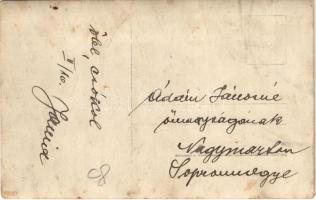 ölel, csókol
II/10.
Janina
Ádám Jánosné
őnagyságának
Nagymarton
Sopronmegye